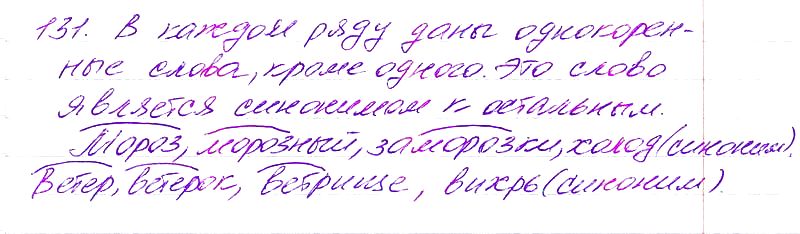 131. В каждом ряду даны однокорен-
ные слова, кроме одного. Это слово
является синонимом к остальным.
Мороз, морозный, заморозки, холод (синоним).
Ветер, ветерок, ветрище, вихрь (синоним).